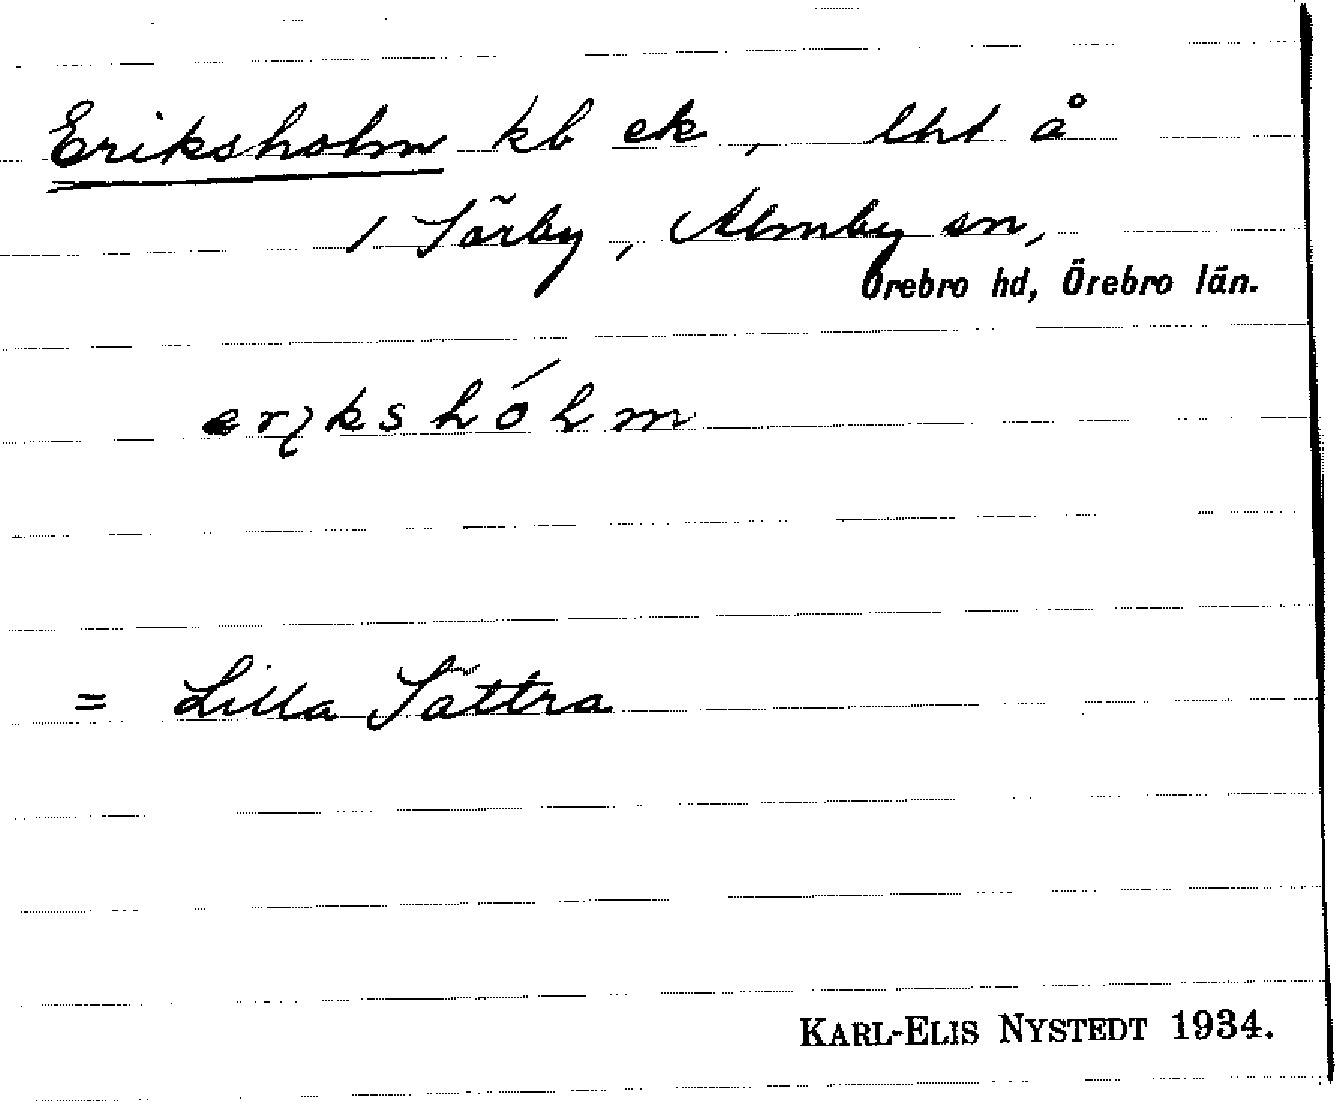 Eriksholm kb ek, lht å
1 Sörby, Almby sn,
Örebro hd, Örebro län.
erıkshólm
= Lilla Sättra
KARL-ELIS NYSTEDT 1934.